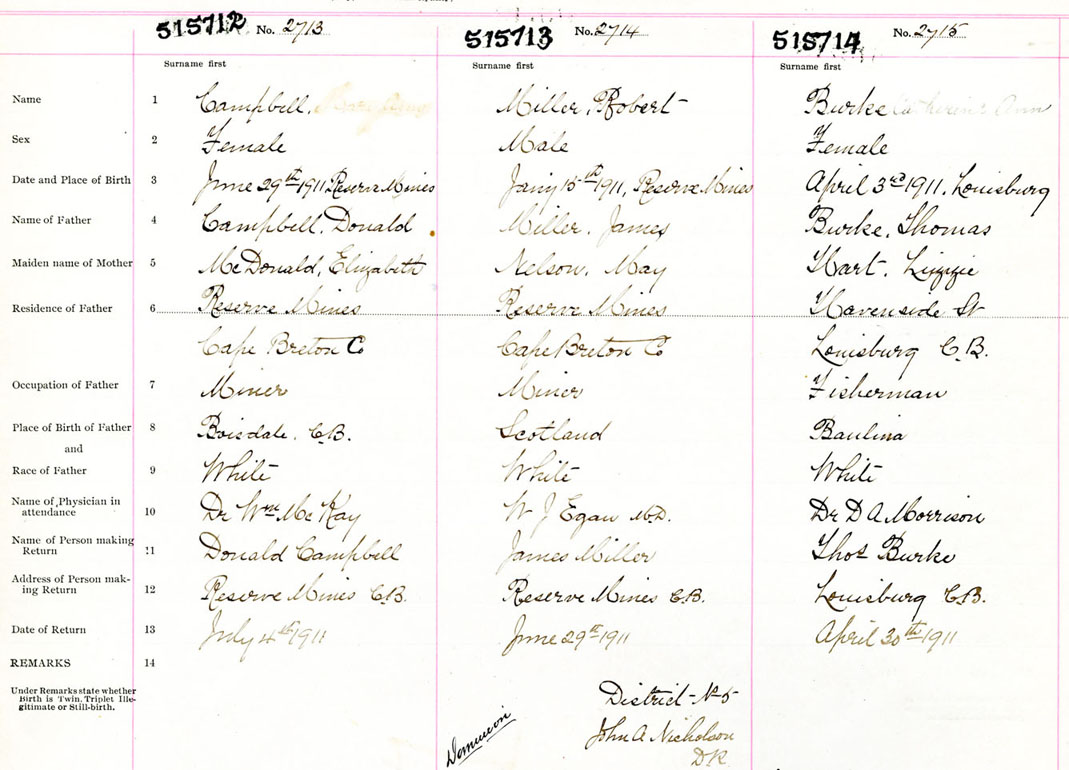 515712 No. 2713 515713 No. 2714 515714 No. 2715
Surname first Surname first Surname first
Name 1 Campbell, Miller, Robert Burke Catherine Ann
Sex 2 Female Male Female
Date and Place of Birth 3 June 29th 1911 Reserve Mines Jany 15th 1911, Reserve Mines April 3rd 1911, Louisburg
Name of Father 4 Campbell, Donald Miller, James Burke, Thomas
Maiden name of Mother 5 McDonald, Elizabeth Nelson, May Hart, Lizzie
Residence of Father 6 Reserve Mines Reserve Mines Havenside St
Cape Breton Co Cape Breton Co Louisburg C.B.
Occupation of Father 7 Miner Miner Fisherman
Place of Birth of Father 8 Boisdale, C.B. Scotland Baulina
and
Race of Father 9 White White White
Name of Physician in
attendance 10 Dr Wm McKay W J Egan M.D. Dr D A Morrison
Name of Person making
Return 11 Donald Campbell James Miller Thos Burke
Address of Person mak-
ing Return 12 Reserve Mines C.B. Reserve Mines C.B. Louisburg C.B.
Date of Return 13 July 4th 1911 June 29th 1911 April 30th 1911
REMARKS 14
Under Remarks state whether
Birth is Twin, Triplet Ille-
gitimate or Still-birth.
District No 5
Dominion John A Nicholson
DR